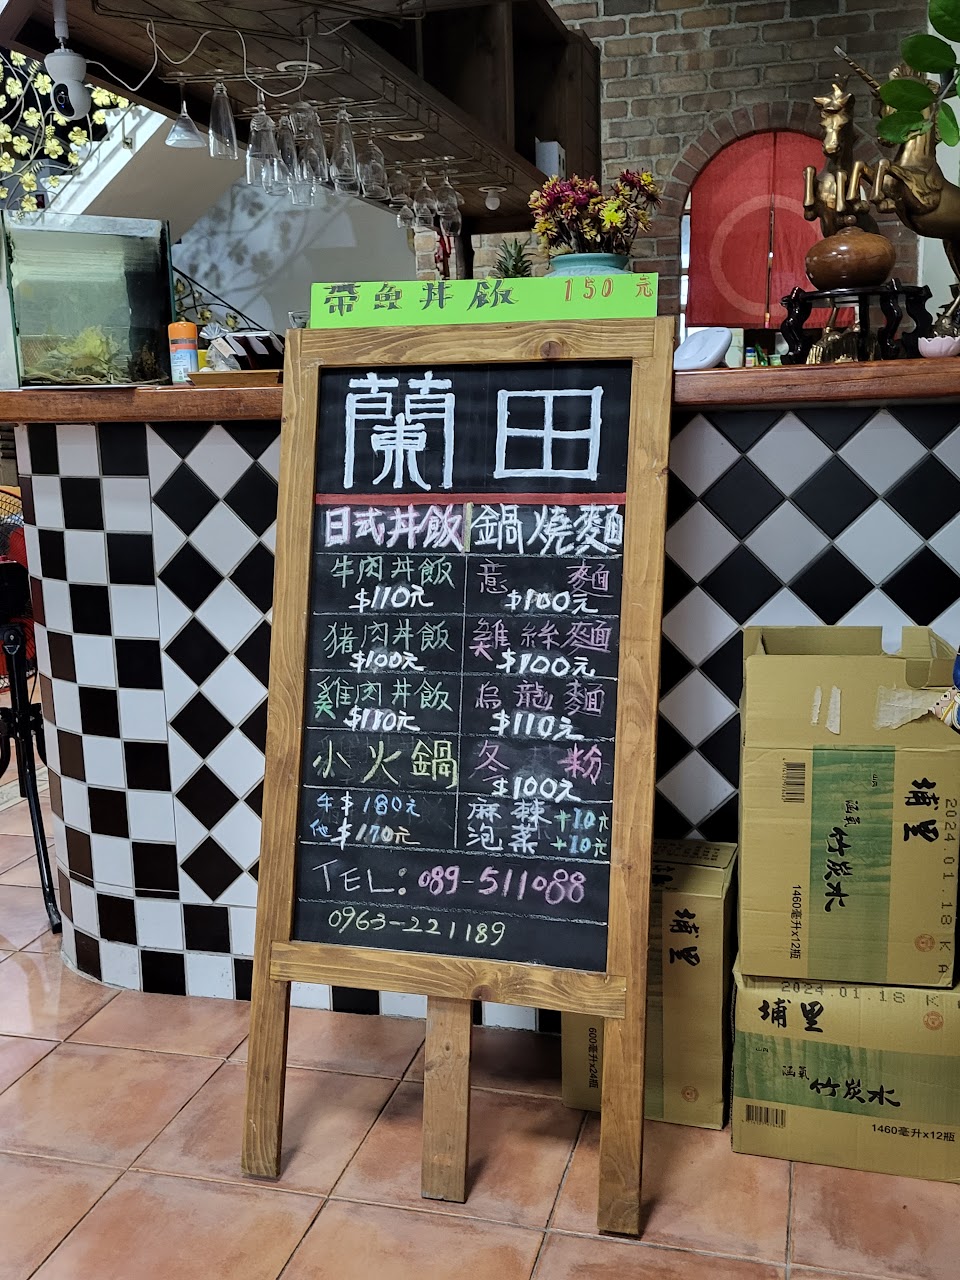 帶魚丼飯 150元
蘭田
日式丼飯 鍋燒麵
牛肉丼飯 $110元
意麵 $100元
猪肉丼飯 $100元
雞絲麵 $100元
雞肉丼飯 $110元
烏龍麵 $110元
小火鍋
冬粉 $100元
牛$180元
他$170元
麻辣+10元
泡菜+10元
TEL: 089-511088
0963-221189
埔里
涵氧
竹炭水
1460毫升x12瓶
2024.01.18 K A
埔里
600毫升x24瓶
2024.01.18
埔里
涵氧
竹炭水
1460毫升x12瓶